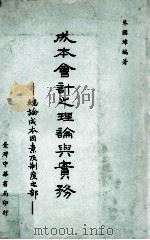 朱國璋編著
成本會計之理論與實務
——總論成本因素及制度之部——
臺灣中華書局印行